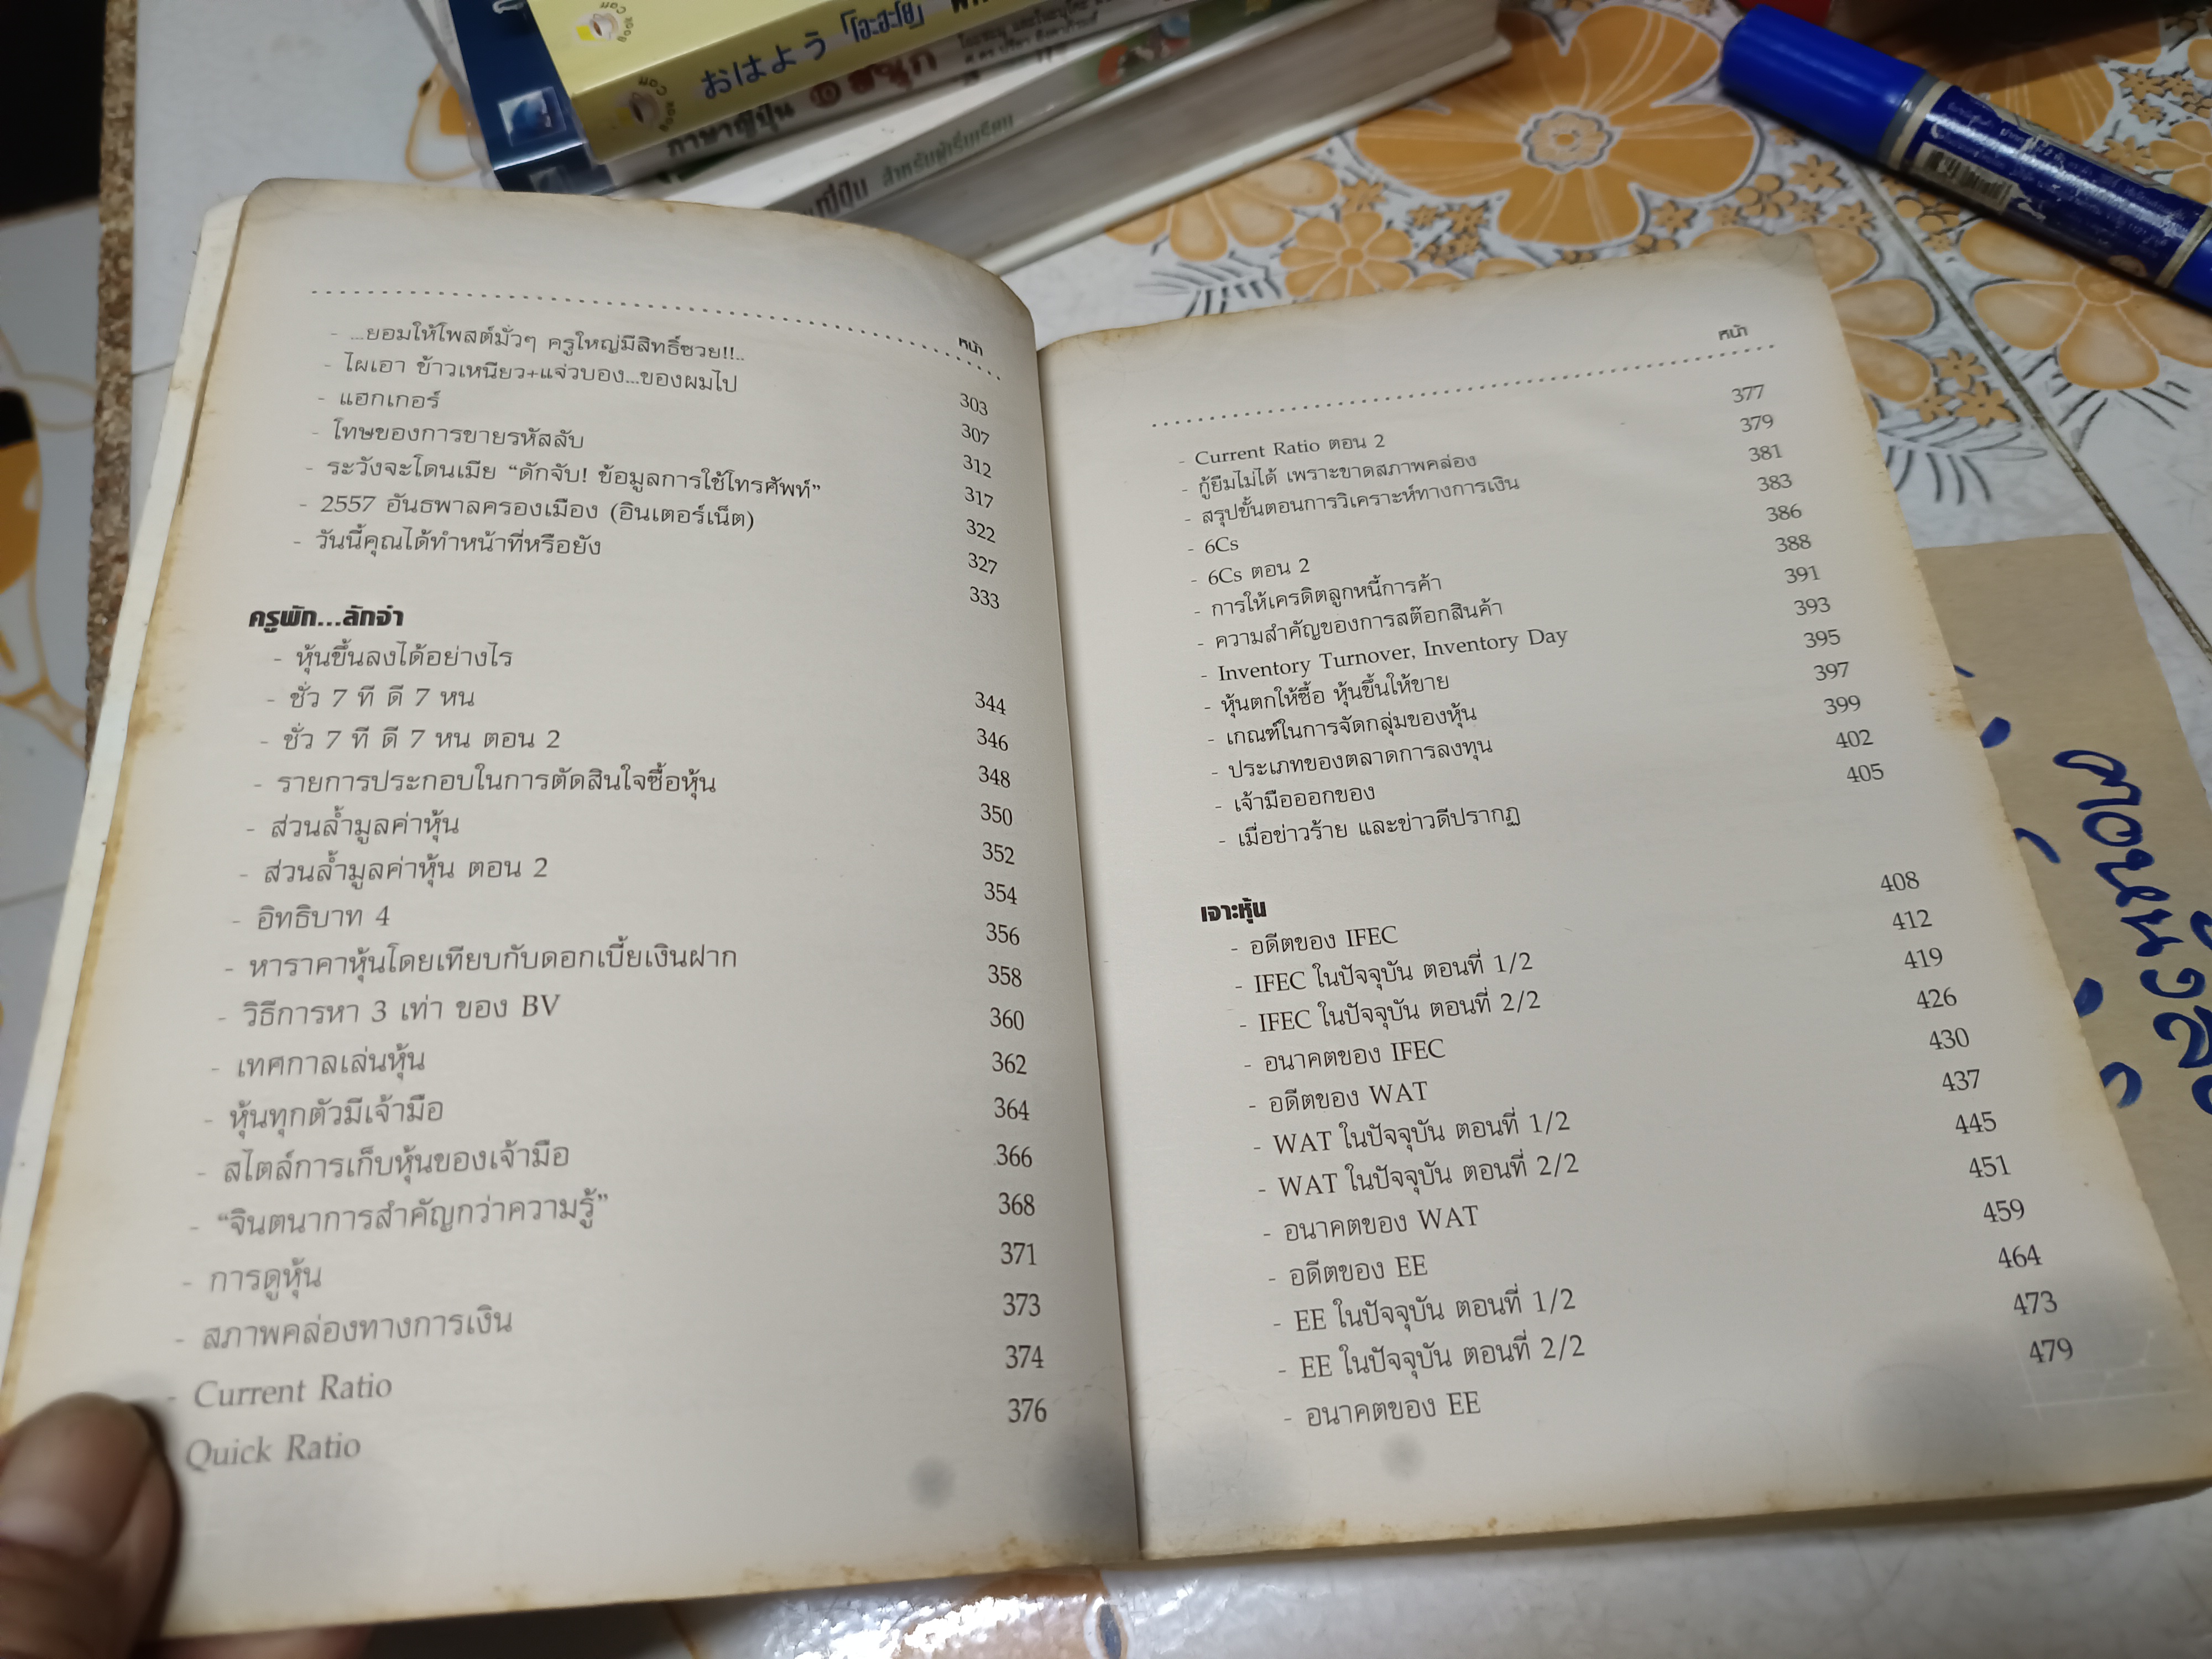 おはよう "โอะฮะโย"
ภาษาญี่ปุ่น
สำหรับผู้เริ่มเรียน
หน้า
- ...ยอมให้โพสต์มั่วๆ ครูใหญ่มีสิทธิ์ซวย!!.. 303
- ไผเอา ข้าวเหนียว+แจ่วบอง...ของผมไป 307
- แฮกเกอร์ 312
- โทษของการขายรหัสลับ 317
- ระวังจะโดนเมีย “ดักจับ! ข้อมูลการใช้โทรศัพท์” 322
- 2557 อันธพาลครองเมือง (อินเตอร์เน็ต) 327
- วันนี้คุณได้ทำหน้าที่หรือยัง 333
ครูพัก...ลักจำ
- หุ้นขึ้นลงได้อย่างไร 344
- ชั่ว 7 ที ดี 7 หน 346
- ชั่ว 7 ที ดี 7 หน ตอน 2 348
- รายการประกอบในการตัดสินใจซื้อหุ้น 350
- ส่วนล้ำมูลค่าหุ้น 352
- ส่วนล้ำมูลค่าหุ้น ตอน 2 354
- อิทธิบาท 4 356
- หาราคาหุ้นโดยเทียบกับดอกเบี้ยเงินฝาก 358
- วิธีการหา 3 เท่า ของ BV 360
- เทศกาลเล่นหุ้น 362
- หุ้นทุกตัวมีเจ้ามือ 364
- สไตล์การเก็บหุ้นของเจ้ามือ 366
- “จินตนาการสำคัญกว่าความรู้” 368
- การดูหุ้น 371
- สภาพคล่องทางการเงิน 373
- Current Ratio 374
Quick Ratio 376
หน้า
- Current Ratio ตอน 2 377
- กู้ยืมไม่ได้ เพราะขาดสภาพคล่อง 379
- สรุปขั้นตอนการวิเคราะห์ทางการเงิน 381
- 6Cs 383
- 6Cs ตอน 2 386
- การให้เครดิตลูกหนี้การค้า 388
- ความสำคัญของการสต๊อกสินค้า 391
- Inventory Turnover, Inventory Day 393
- หุ้นตกให้ซื้อ หุ้นขึ้นให้ขาย 395
- เกณฑ์ในการจัดกลุ่มของหุ้น 397
- ประเภทของตลาดการลงทุน 399
- เจ้ามือออกของ 402
- เมื่อข่าวร้าย และข่าวดีปรากฏ 405
เจาะหุ้น
- อดีตของ IFEC 408
- IFEC ในปัจจุบัน ตอนที่ 1/2 412
- IFEC ในปัจจุบัน ตอนที่ 2/2 419
- อนาคตของ IFEC 426
- อดีตของ WAT 430
- WAT ในปัจจุบัน ตอนที่ 1/2 437
- WAT ในปัจจุบัน ตอนที่ 2/2 445
- อนาคตของ WAT 451
- อดีตของ EE 459
- EE ในปัจจุบัน ตอนที่ 1/2 464
- EE ในปัจจุบัน ตอนที่ 2/2 473
- อนาคตของ EE 479